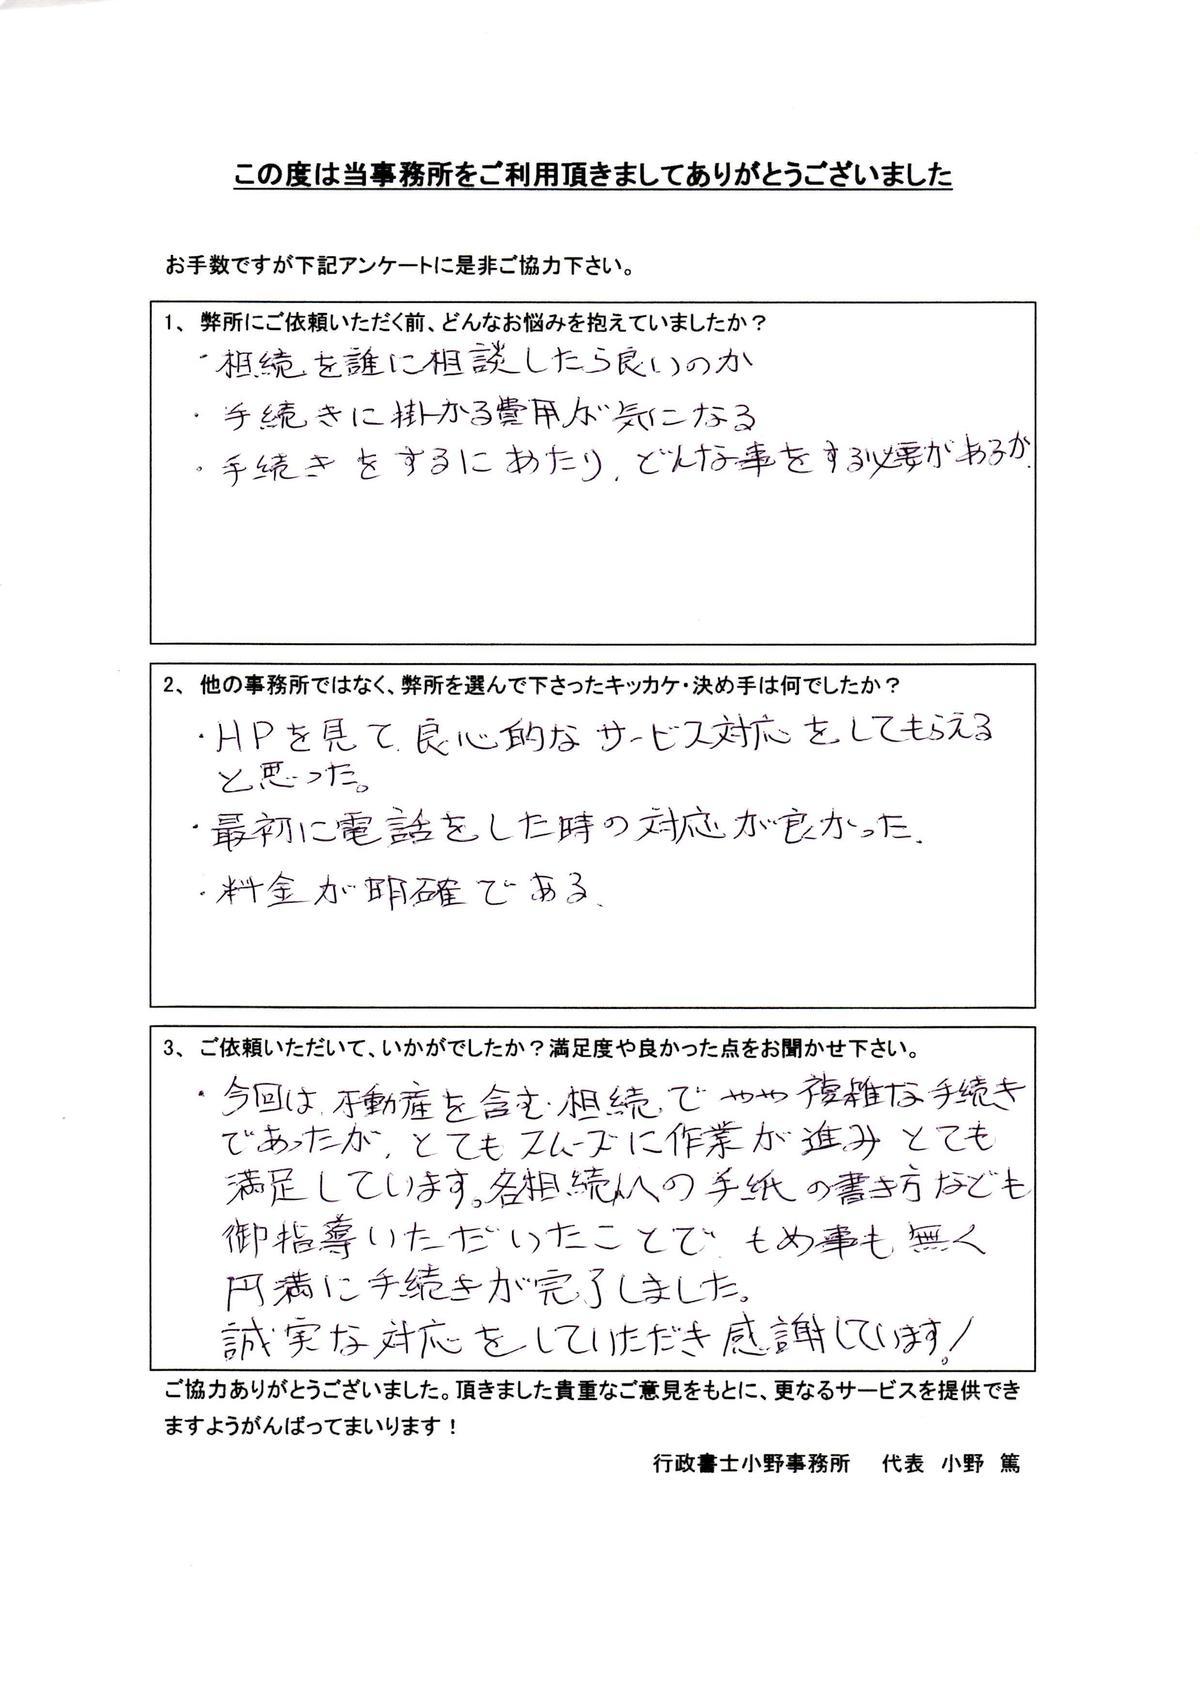 この度は当事務所をご利用頂きましてありがとうございました
お手数ですが下記アンケートに是非ご協力下さい。
1、 弊所にご依頼いただく前、どんなお悩みを抱えていましたか？
・相続を誰に相談したら良いのか
・手続きに掛かる費用が気になる
・手続きをするにあたり、どんな事をする必要があるか、
2、 他の事務所ではなく、弊所を選んで下さったキッカケ・決め手は何でしたか？
・HPを見て、良心的なサービス対応をしてもらえる
と思った。
・最初に電話をした時の対応が良かった、
・料金が明確である、
3、 ご依頼いただいて、いかがでしたか？満足度や良かった点をお聞かせ下さい。
・今回は、不動産を含む相続でやや複雑な手続き
であったが、とてもスムーズに作業が進みとても
満足しています。各相続人への手紙の書き方なども
御指導いただいたことで、もめ事も無く
円満に手続きが完了しました。
誠実な対応をしていただき感謝しています！
ご協力ありがとうございました。頂きました貴重なご意見をもとに、更なるサービスを提供でき
ますようがんばってまいります！
行政書士小野事務所　代表　小野　篤